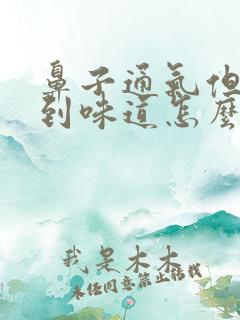 鼻子通氣但
到味道怎麼
我是木木
未经同意禁止搬找